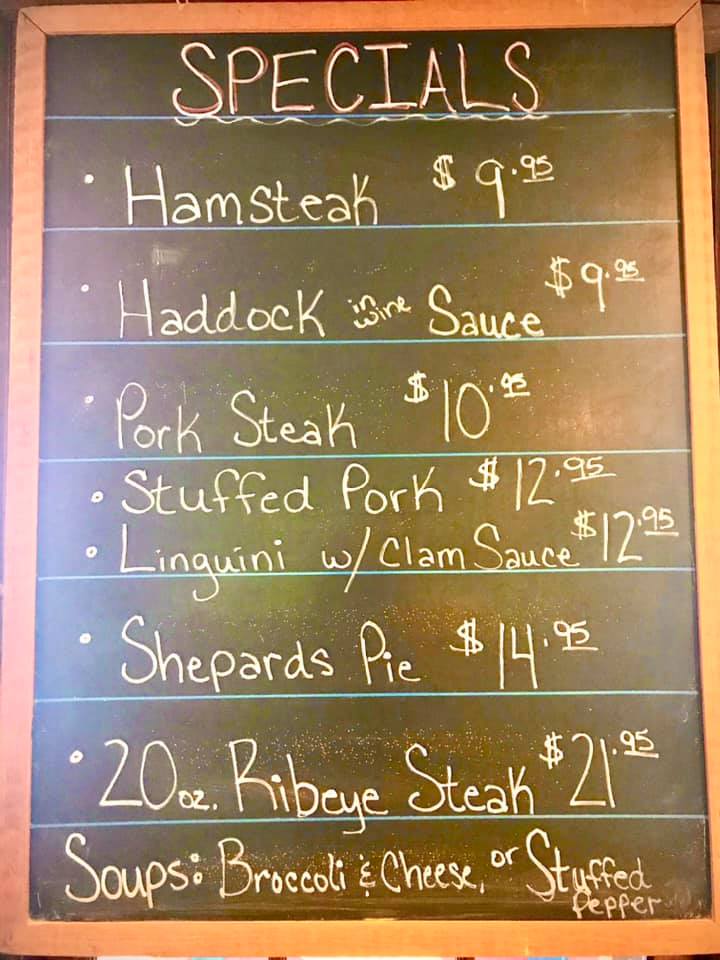 SPECIALS
• Hamsteak $9.95
• Haddock in wine Sauce $9.95
• Pork Steak $10.95
• Stuffed Pork $12.95
• Linguini w/ Clam Sauce $12.95
• Shepards Pie $14.95
• 20 oz. Ribeye Steak $21.95
Soups: Broccoli & Cheese, or Stuffed Pepper